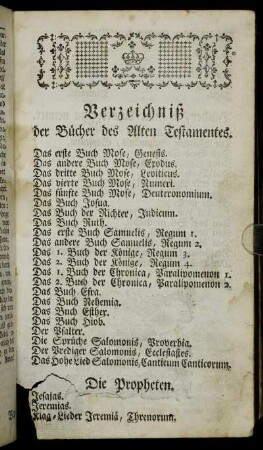 Verzeichniß
der Bücher des Alten Testamentes.
Das erste Buch Mose, Genesis.
Das andere Buch Mose, Exodus.
Das dritte Buch Mose, Leviticus.
Das vierte Buch Mose, Numeri.
Das fünfte Buch Mose, Deuteronomium.
Das Buch Josua.
Das Buch der Richter, Judicum.
Das Buch Ruth.
Das erste Buch Samuelis, Regum 1.
Das andere Buch Samuelis, Regum 2.
Das 1. Buch der Könige, Regum 3.
Das 2. Buch der Könige, Regum 4.
Das 1. Buch der Chronica, Paralipomenon 1.
Das 2. Buch der Chronica, Paralipomenon 2.
Das Buch Esra.
Das Buch Nehemia.
Das Buch Esther.
Das Buch Hiob.
Der Psalter.
Die Sprüche Salomonis, Proverbia.
Der Prediger Salomonis, Ecclesiastes.
Das Hohe Lied Salomonis, Canticum Canticorum.
Die Propheten.
Jesajas.
Jeremias.
Klag-Lieder Jeremiä, Threnorum.